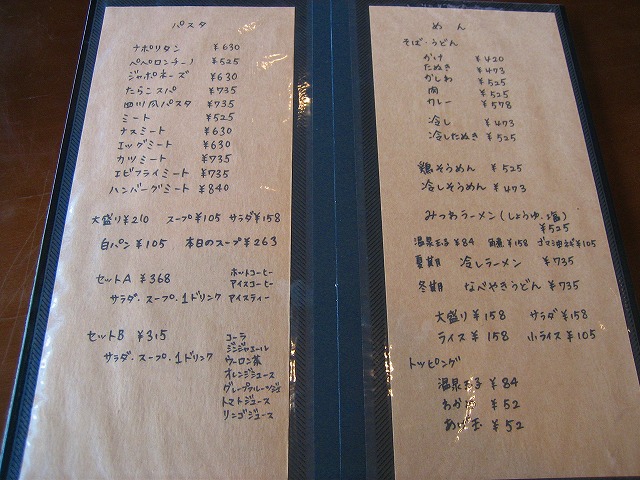 パスタ
ナポリタン ¥630
ペペロンチーノ ¥525
ジャポネーズ ¥630
たらこスパ ¥735
四川瓜パスタ ¥735
ミート ¥525
ナスミート ¥630
エッグミート ¥630
カツミート ¥735
エビフライミート ¥735
ハンバーグミート ¥840
大盛り¥210 スープ¥105 サラダ¥158
白パン ¥105 本日のスープ¥263
セットA ¥368
サラダ・スープ・1ドリンク
ホットコーヒー
アイスコーヒー
アイスティー
セットB ¥315
サラダ・スープ・1ドリンク
コーラ
ジンジャエール
ウーロン茶
オレンジジュース
グレープフルーツジュース
トマトジュース
リンゴジュース
めん
そば・うどん
かけ ¥420
たぬき ¥473
かしわ ¥525
肉 ¥525
カレー ¥578
冷し ¥473
冷したぬき ¥525
鶏そうめん ¥525
冷しそうめん ¥473
みつわラーメン(しょうゆ・塩)
¥525
温泉玉子¥84 ¥158 ¥105
夏期 冷しラーメン ¥735
冬期 なべやきうどん ¥735
大盛り ¥158 サラダ ¥158
ライス ¥158 小ライス ¥105
トッピング
温泉玉子 ¥84
わかめ ¥52
あげ玉 ¥52